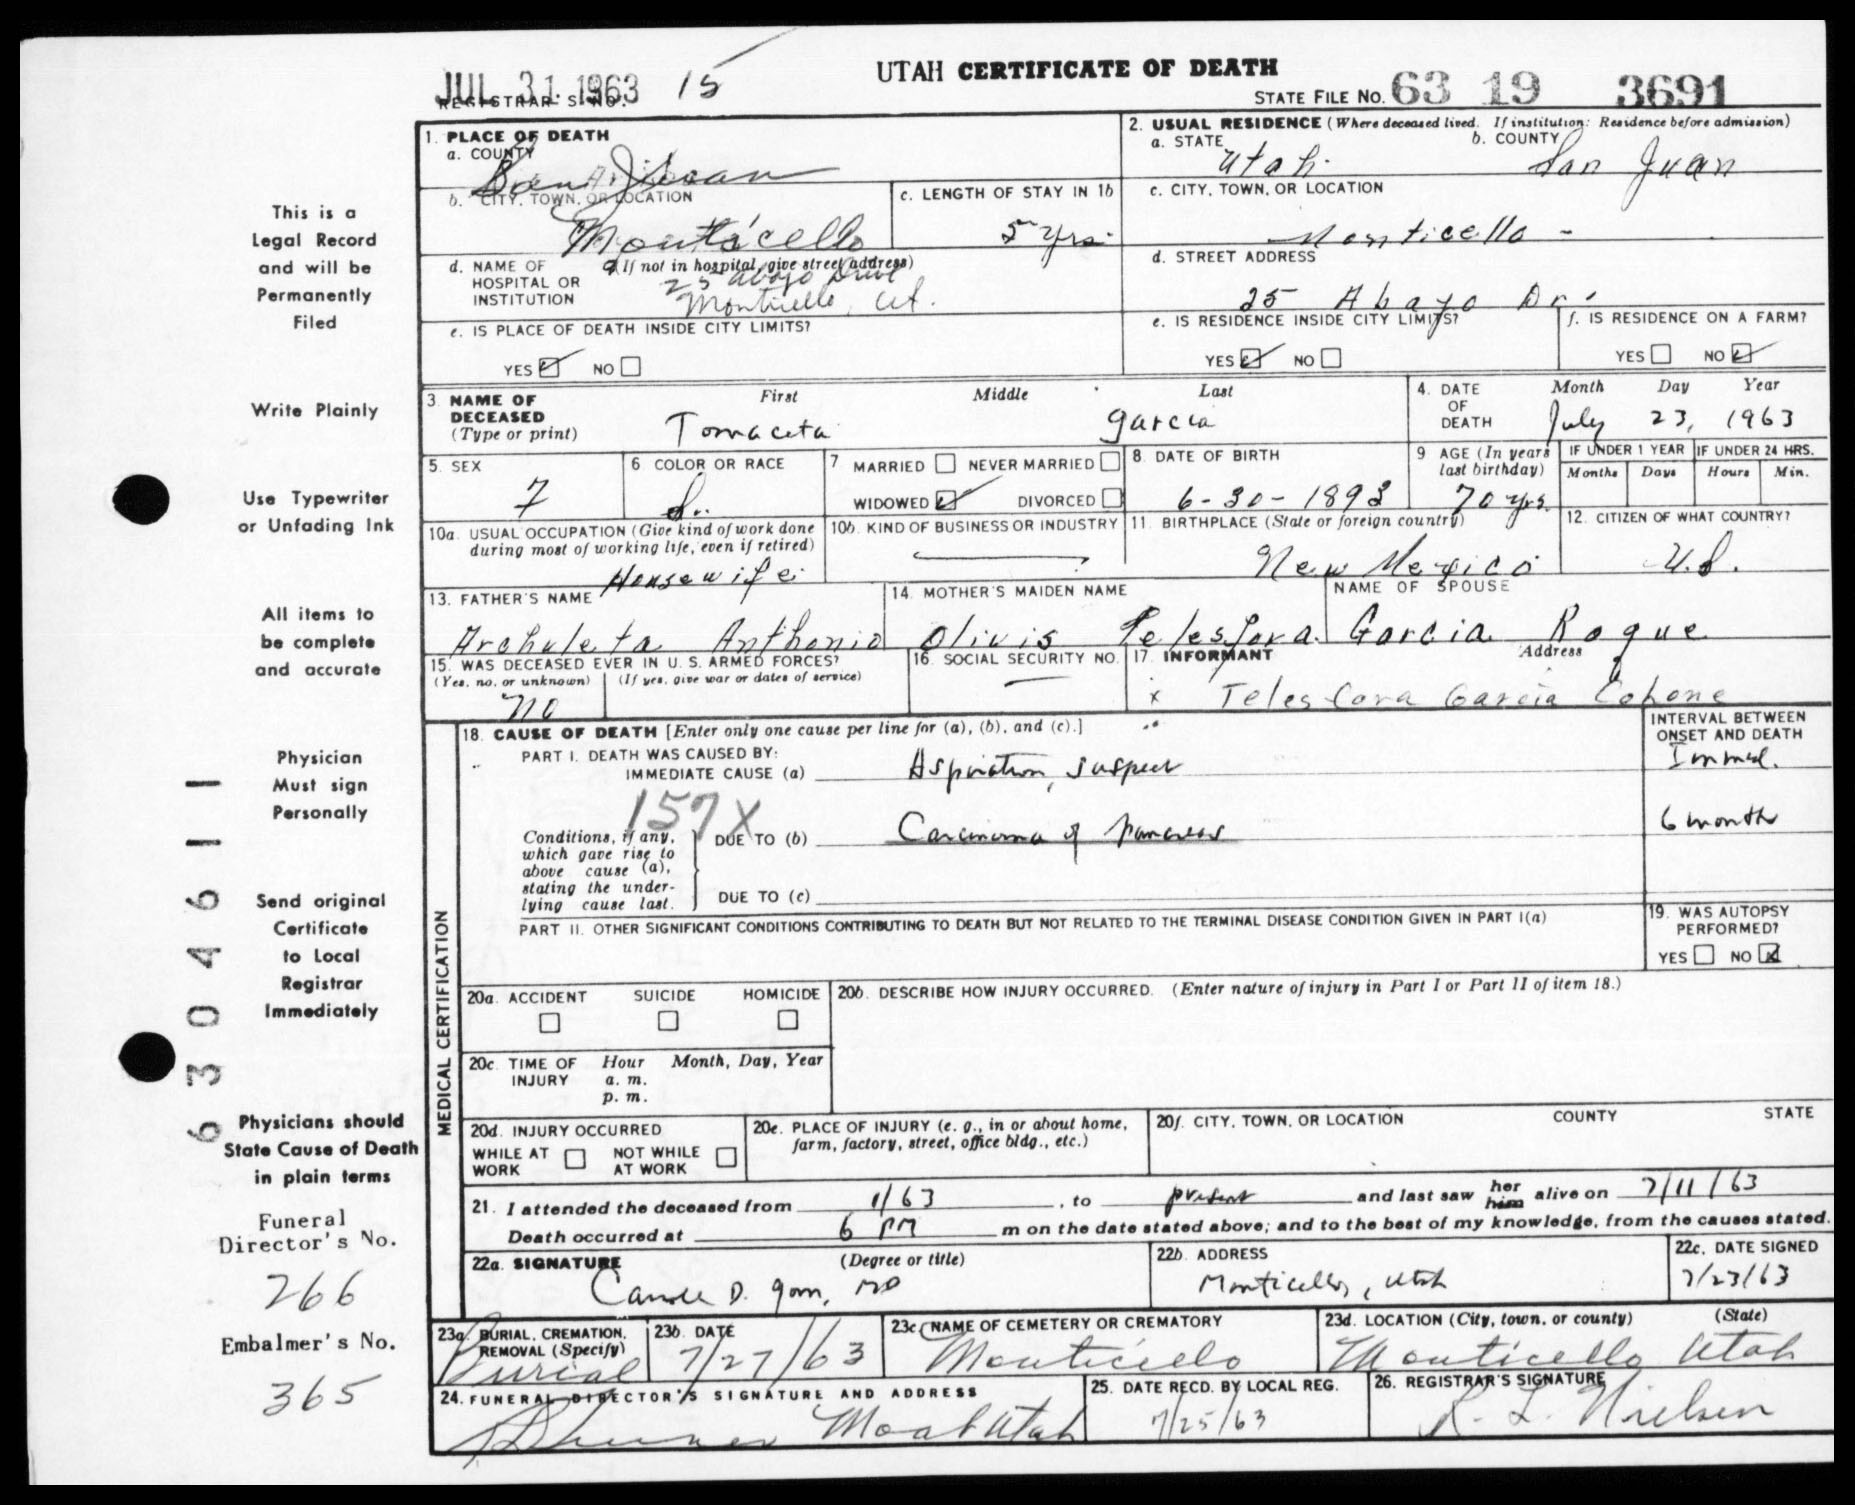 JUL 31 1963 15
UTAH CERTIFICATE OF DEATH
REGISTRAR'S NO.
STATE FILE NO. 63 19 3691
This is a
Legal Record
and will be
Permanently
Filed
Write Plainly
Use Typewriter
or Unfading Ink
All items to
be complete
and accurate
Physician
Must sign
Personally
Send original
Certificate
to Local
Registrar
Immediately
Physicians should
State Cause of Death
in plain terms
Funeral
Director's No.
266
Embalmer's No.
365
6304611
1. PLACE OF DEATH
a. COUNTY
San Juan
2. USUAL RESIDENCE (Where deceased lived. If institution: Residence before admission)
a. STATE Utah.
b. COUNTY San Juan
b. CITY, TOWN, OR LOCATION
Monticello
c. LENGTH OF STAY IN 1b
5 yrs.
c. CITY, TOWN, OR LOCATION
Monticello -
d. NAME OF HOSPITAL OR INSTITUTION
(If not in hospital, give street address)
25 Abajo Drive
Monticello, Ut.
d. STREET ADDRESS
25 Abayo Dr.
e. IS PLACE OF DEATH INSIDE CITY LIMITS?
YES ☑ NO ☐
e. IS RESIDENCE INSIDE CITY LIMITS?
YES ☑ NO ☐
f. IS RESIDENCE ON A FARM?
YES ☐ NO ☑
3. NAME OF DECEASED
(Type or print)
First Middle Last
Tomaceta Garcia
4. DATE OF DEATH
Month Day Year
July 23, 1963
5. SEX
F
6 COLOR OR RACE
7 MARRIED ☐ NEVER MARRIED ☐
WIDOWED ☑ DIVORCED ☐
8. DATE OF BIRTH
6-30-1893
9 AGE (In years last birthday)
70 yrs.
IF UNDER 1 YEAR
Months Days
IF UNDER 24 HRS.
Hours Min.
10a. USUAL OCCUPATION (Give kind of work done during most of working life, even if retired)
Housewife
10b. KIND OF BUSINESS OR INDUSTRY
11. BIRTHPLACE (State or foreign country)
New Mexico
12. CITIZEN OF WHAT COUNTRY?
U.S.
13. FATHER'S NAME
Archuleta Anthonio
14. MOTHER'S MAIDEN NAME
Olivis Telesfora
NAME OF SPOUSE
Garcia Rogue
15. WAS DECEASED EVER IN U.S. ARMED FORCES?
(Yes, no, or unknown) (If yes, give war or dates of service)
no
16. SOCIAL SECURITY NO.
17. INFORMANT Address
x Telesfora Garcia Cohone
MEDICAL CERTIFICATION
18. CAUSE OF DEATH [Enter only one cause per line for (a), (b), and (c).]
PART I. DEATH WAS CAUSED BY:
IMMEDIATE CAUSE (a) Aspiration, suspect
INTERVAL BETWEEN ONSET AND DEATH
Immed.
157X
Conditions, if any, which gave rise to above cause (a), stating the underlying cause last.
DUE TO (b) Carcinoma of pancreas
6 months
DUE TO (c)
PART II. OTHER SIGNIFICANT CONDITIONS CONTRIBUTING TO DEATH BUT NOT RELATED TO THE TERMINAL DISEASE CONDITION GIVEN IN PART I(a)
19. WAS AUTOPSY PERFORMED?
YES ☐ NO ☒
20a. ACCIDENT SUICIDE HOMICIDE
☐ ☐ ☐
20b. DESCRIBE HOW INJURY OCCURRED. (Enter nature of injury in Part I or Part II of item 18.)
20c. TIME OF INJURY Hour Month, Day, Year
a. m.
p. m.
20d. INJURY OCCURRED
WHILE AT WORK ☐ NOT WHILE AT WORK ☐
20e. PLACE OF INJURY (e. g., in or about home, farm, factory, street, office bldg., etc.)
20f. CITY, TOWN, OR LOCATION COUNTY STATE
21. I attended the deceased from 1/63, to present and last saw her him alive on 7/11/63
Death occurred at 6 PM m on the date stated above; and to the best of my knowledge, from the causes stated.
22a. SIGNATURE (Degree or title)
D. MD
22b. ADDRESS
Monticello, Utah
22c. DATE SIGNED
7/23/63
23a. BURIAL, CREMATION, REMOVAL (Specify)
Burial
23b. DATE
7/27/63
23c. NAME OF CEMETERY OR CREMATORY
Monticello
23d. LOCATION (City, town, or county) (State)
Monticello Utah
24. FUNERAL DIRECTOR'S SIGNATURE AND ADDRESS
Moab Utah
25. DATE RECD. BY LOCAL REG.
7/25/63
26. REGISTRAR'S SIGNATURE
R. L. Nielsen